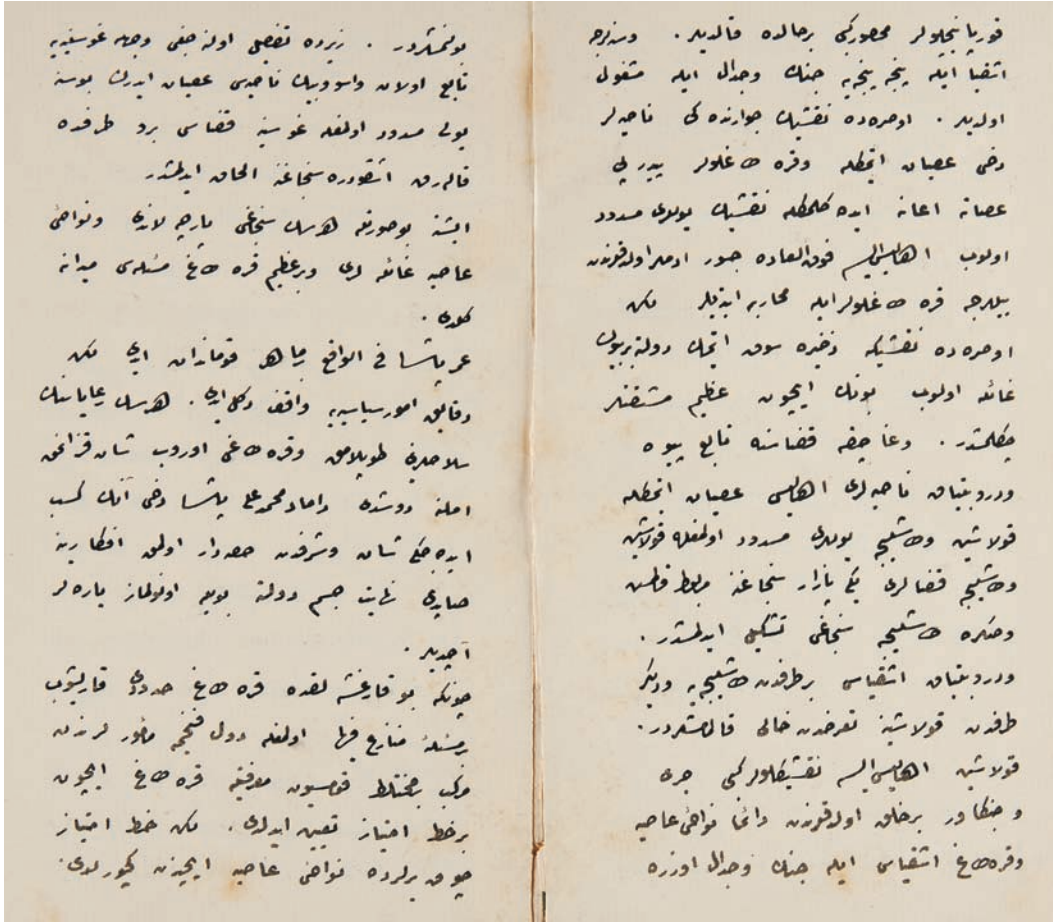 قوریانیجیلولر محصور کبی بر حالده قالدیلر . وسنه لرجه
اشقیا ایله پنجه پنجه یه جنك وجدال ایله مشغول
اولدیلر . اوصره ده نقشیك جوارنده کی ناحیه لر
دخی عصیان ایتمکله وقره طاغلولر پیدرپی
عصاته اعانه ایده کلمکله نقشیك یوللری مسدود
اولوب اهالیسی ایسه فوق العاده جسور ادملر اولدقلرندن
ییللرجه قره طاغلولر ایله محاربه ایتدیلر لکن
اوصره ده نقشیکه ذخیره سوق ایتمك دولته بر بیوك
غائله اولوب بونك ایچون عظیم مشقتلر
چکلمشدر . وغاچقه قضاسنه تابع پیوه
ودروبنیاق ناحیه لری اهالیسی عصیان ایتمکله
قولاشین وطاشلیجه یوللری مسدود اولمغله قولاشین
وطاشلیجه قضالری یکی پازار سنجاغنه مربوط قلمش
وصکره طاشلیجه سنجاغی تشکیل ایدلمشدر .
ودروبنیاق اشقیاسی بر طرفدن طاشلیجه یه ودیکر
طرفدن قولاشینه تعرضدن خالی قالمامشلردر .
قولاشین اهالیسی ایسه نقشیکلولر کبی جری
وجنکاور بر خلق اولدقلرندن دائما نواحئ عاصیه
وقره طاغ اشقیاسی ایله جنك وجدال اوزره
بولنمشلردر . زیرده تفصیل اولنه جغی وجهله غوسینیه یه
تابع اولان واسوویك ناحیه سی عصیان ایدرك بوسنه
یولی مسدود اولمغله غوسینه قضاسی بری طرفده
قاله رق اشقودره سنجاغنه الحاق ایدلمشدر
ایشته بو صورتله هرسك سنجاغی پارچه لاندی ونواحئ
عاصیه غائله لری وبر عظیم قره طاغ مسئله سی میدانه
کلدی .
عمر پاشا فی الواقع ماهر قوماندان ایدی لکن
دقایق امور سیاسیه یه واقف دکل ایدی . هرسك رعایاسنك
سلاحلرینی طوپلامق وقره طاغی اوروب شان قزانمق
املنه دوشدی داماد محمد علی پاشا دخی آنك کسب
ایده جکی شان وشرفدن حصه دار اولمق افکارینه
صاپدی نهایت جسم دولته بویله اوکولماز یاره لر
آچدیلر .
چونکه بو قارغشه لقده قره طاغ حدودی قاریشوب
بر مسئلۀ متنازع فیها اولمغله دول فخیمه مأمورلرندن
مرکب بر مختلط قومسیون معرفتیله قره طاغ ایچون
بر خط امتیاز تعیین ایدلدی . لکن خط امتیاز
چوق یرلرده نواحئ عاصیه ایچندن کچورلدی .